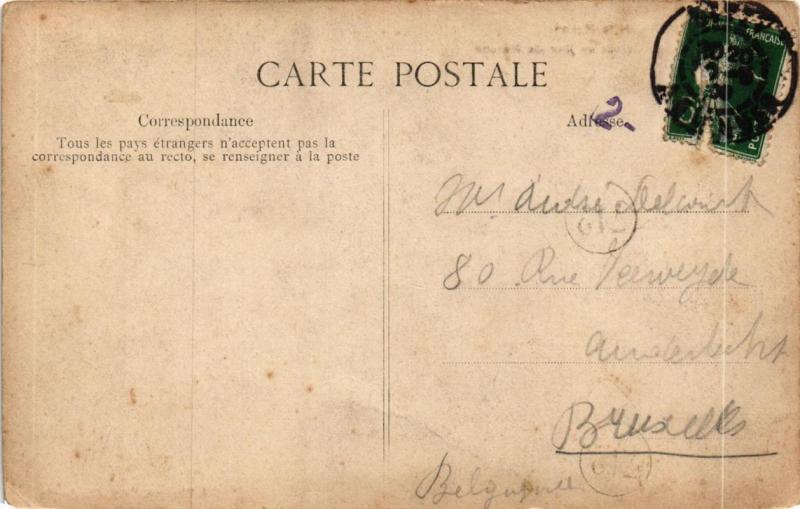 CARTE POSTALE
Correspondance
Tous les pays étrangers n'acceptent pas la
correspondance au recto, se renseigner à la poste
Adresse
2
FRANÇAISE
Mr André Delcourt
80 Rue
Anderlecht
Bruxelles
Belgique